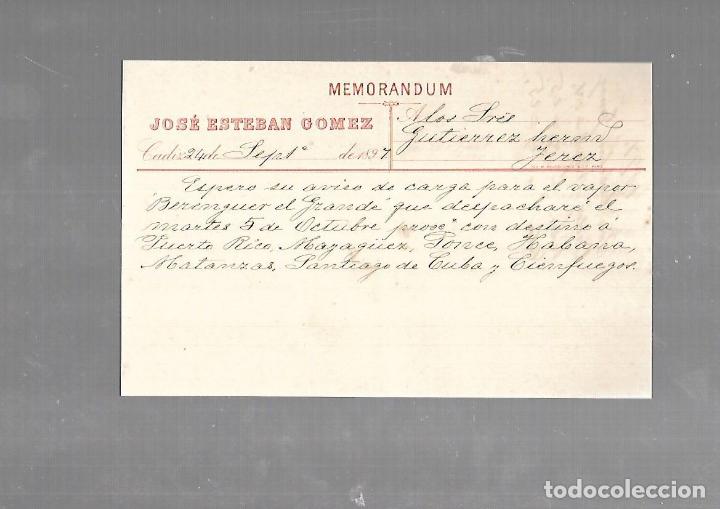 MEMORANDUM
JOSÉ ESTEBAN GOMEZ
Cadiz 24 de Septe de 1897
A los Sres
Gutierrez hermos
Jerez
Espero su aviso de carga para el vapor
Berenguer el Grande que despacharé el
martes 5 de Octubre proxo con destino á
Puerto Rico, Mayagüez, Ponce, Habana,
Matanzas, Santiago de Cuba y Cienfuegos.
todocoleccion.net